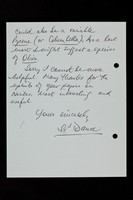 could also be a variable
Pyrene (or Columbella). As a last
more I might suggest a species
of Oliva.
Sorry I cannot be more
helpful. Many thanks for the
reprints of your papers in
both most interesting and
useful.
Yours sincerely,